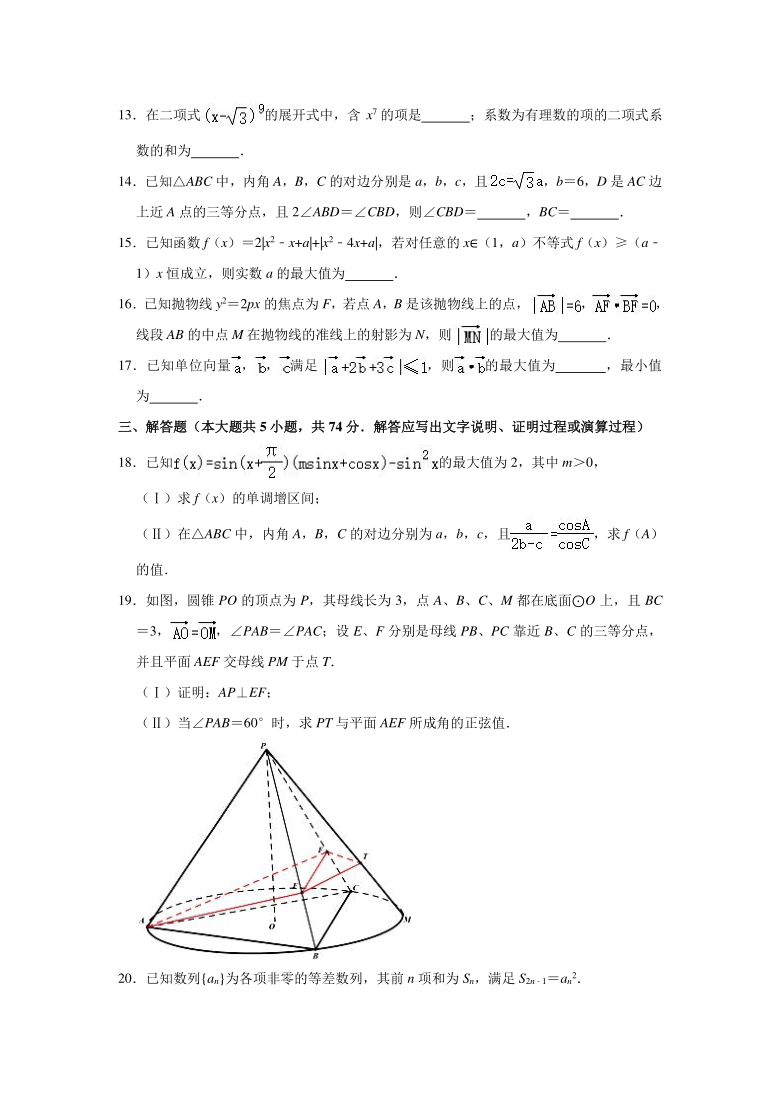 13．在二项式(x-√3)⁹的展开式中，含 x⁷ 的项是 ；系数为有理数的项的二项式系
数的和为 ．
14．已知△ABC 中，内角 A，B，C 的对边分别是 a，b，c，且2c=√3a，b＝6，D 是 AC 边
上近 A 点的三等分点，且 2∠ABD＝∠CBD，则∠CBD＝ ，BC＝ ．
15．已知函数 f（x）＝2|x²﹣x+a|+|x²﹣4x+a|，若对任意的 x∈（1，a）不等式 f（x）≥（a﹣
1）x 恒成立，则实数 a 的最大值为 ．
16．已知抛物线 y²＝2px 的焦点为 F，若点 A，B 是该抛物线上的点，|AB→|=6，AF→•BF→=0，
线段 AB 的中点 M 在抛物线的准线上的射影为 N，则|MN→|的最大值为 ．
17．已知单位向量a→，b→，c→满足|a→+2b→+3c→|≤1，则a→•b→的最大值为 ，最小值
为 ．
三、解答题（本大题共 5 小题，共 74 分．解答应写出文字说明、证明过程或演算过程）
18．已知f(x)=sin(x+π/2)(msinx+cosx)-sin²x的最大值为 2，其中 m＞0，
（Ⅰ）求 f（x）的单调增区间；
（Ⅱ）在△ABC 中，内角 A，B，C 的对边分别为 a，b，c，且a/(2b-c)=cosA/cosC，求 f（A）
的值．
19．如图，圆锥 PO 的顶点为 P，其母线长为 3，点 A、B、C、M 都在底面⊙O 上，且 BC
＝3，AO→=OM→，∠PAB＝∠PAC；设 E、F 分别是母线 PB、PC 靠近 B、C 的三等分点，
并且平面 AEF 交母线 PM 于点 T．
（Ⅰ）证明：AP⊥EF；
（Ⅱ）当∠PAB＝60°时，求 PT 与平面 AEF 所成角的正弦值．
P
T
C
A
O
M
B
20．已知数列{aₙ}为各项非零的等差数列，其前 n 项和为 Sₙ，满足 S₂ₙ₋₁＝aₙ²．